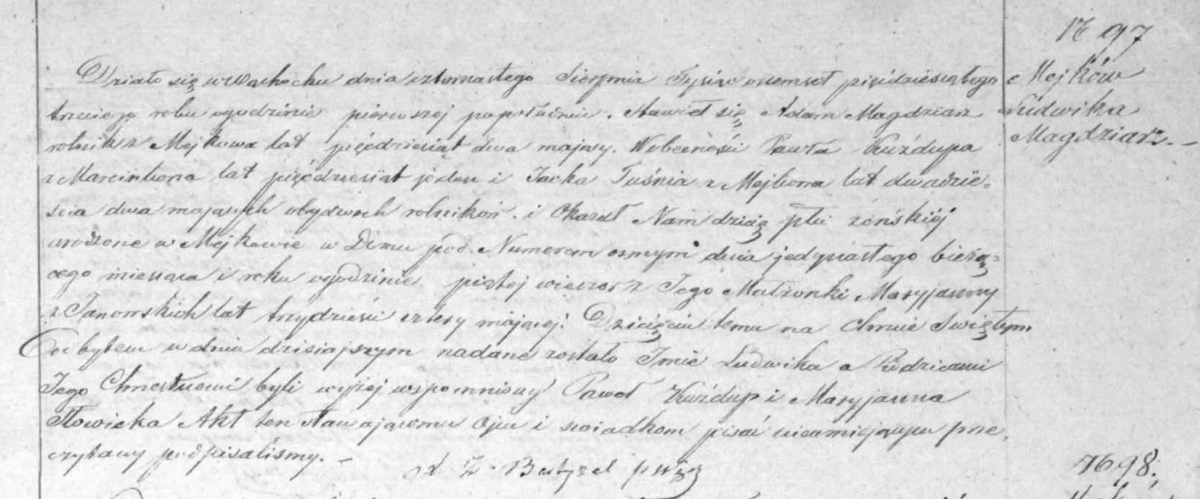 N 97
Mejków
Ludwika
Magdziarz. –
Działo się w Wąchocku dnia czternastego Sierpnia Tysiąc osiemset pięćdziesiątego
trzeciego roku o godzinie pierwszej popołudniu. Stawił się Adam Magdziarz
rolnik z Mejkowa lat pięćdziesiąt dwa mający. W obecności Pawła Kuźdupa
z Marcinkowa lat pięćdziesiąt jeden i Jacka Tuśnia z Mejkowa lat dwadzie-
ścia dwa mających obydwoch rolników. i Okazał Nam dziecię płci zeńskiej
urodzone w Mejkowie w Domu pod Numerem osmym dnia jedynastego bieżą-
cego miesiąca i roku o godzinie piątej wieczor z Jego Małżonki Maryjanny
z Janowskich lat trzydzieści cztery mającej. Dziecięciu temu na Chrzcie Swiętym
odbytem w dniu dzisiajszym nadane zostało Imie Ludwika a Rodzicami
Jego Chrzestnemi byli wyżej wspomniony Paweł Kuźdup i Maryjanna
Słowicka Akt ten stawającemu Ojcu i swiadkom pisać nieumiejącym prze-
czytany podpisalismy. –
X Z.
N 98.